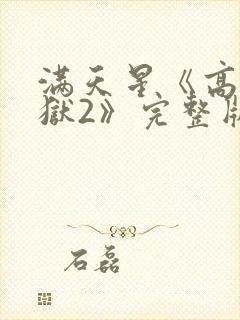 满天星《高
獄2》完整版
石磊